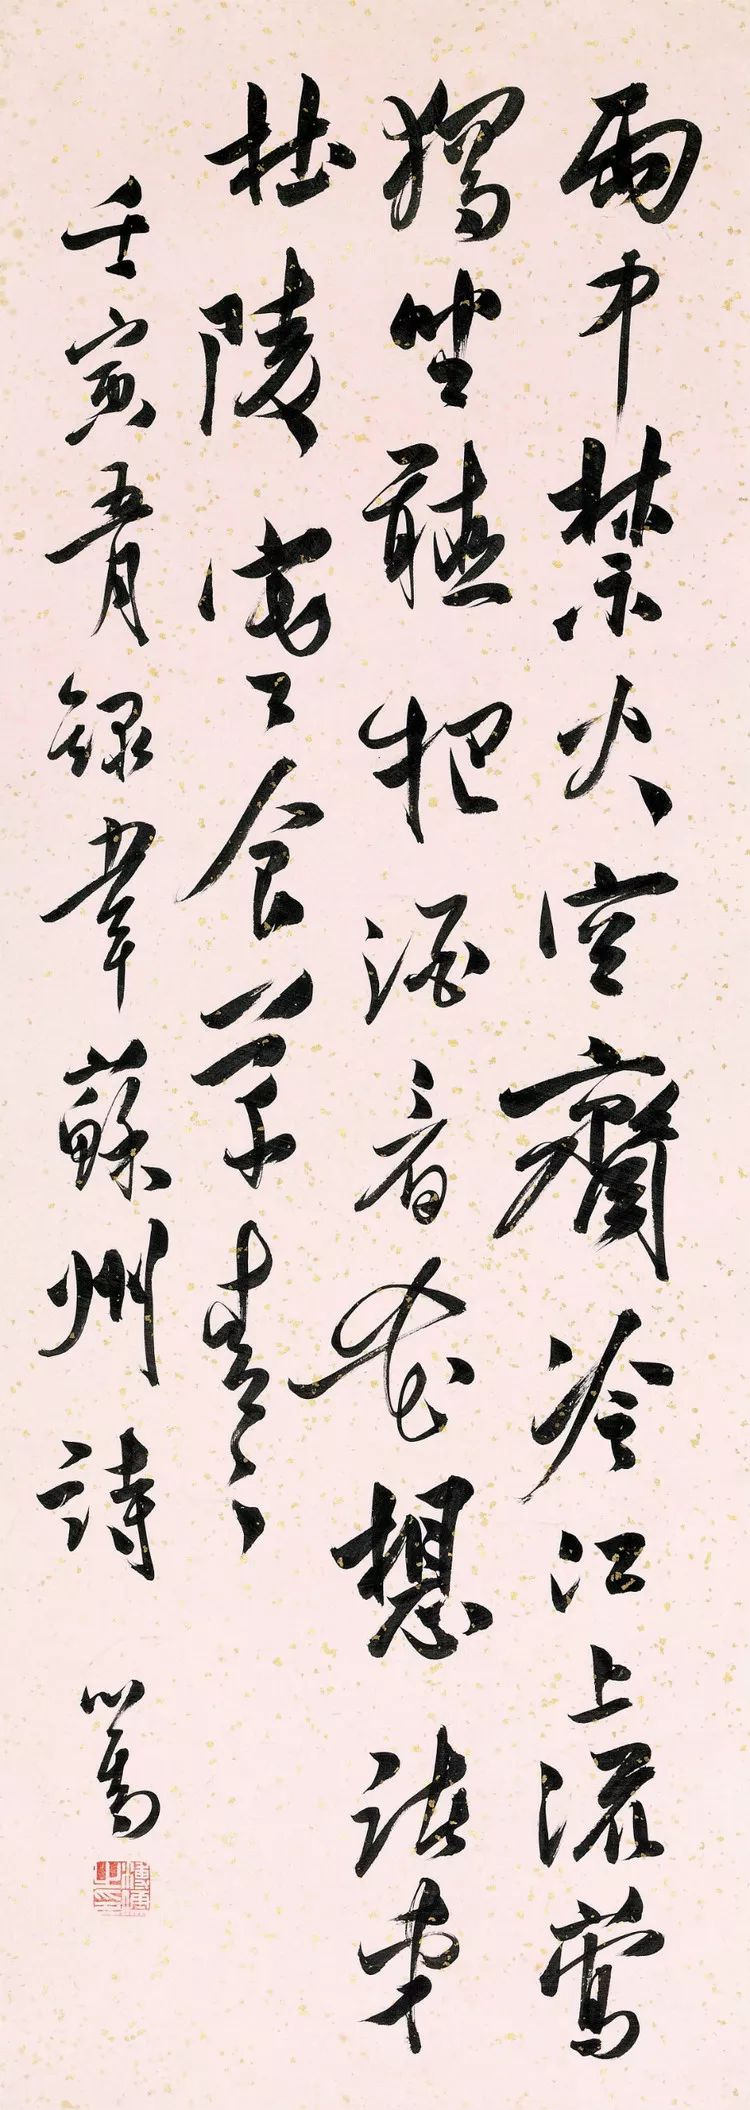 雨中禁火空齋冷江上流鶯
獨坐聽把酒看花想諸弟
杜陵寒食草青〻
壬寅五月錄韋蘇州詩
心畬
溥儒之印